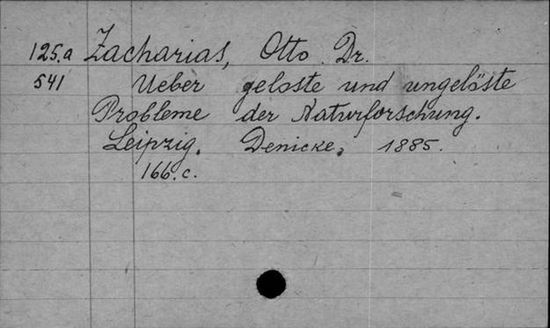 125.a Zacharias, Otto Dr.
541 Ueber geloste und ungelöste
Probleme der Naturforschung.
Leipzig. Denicke. 1885.
166.c.